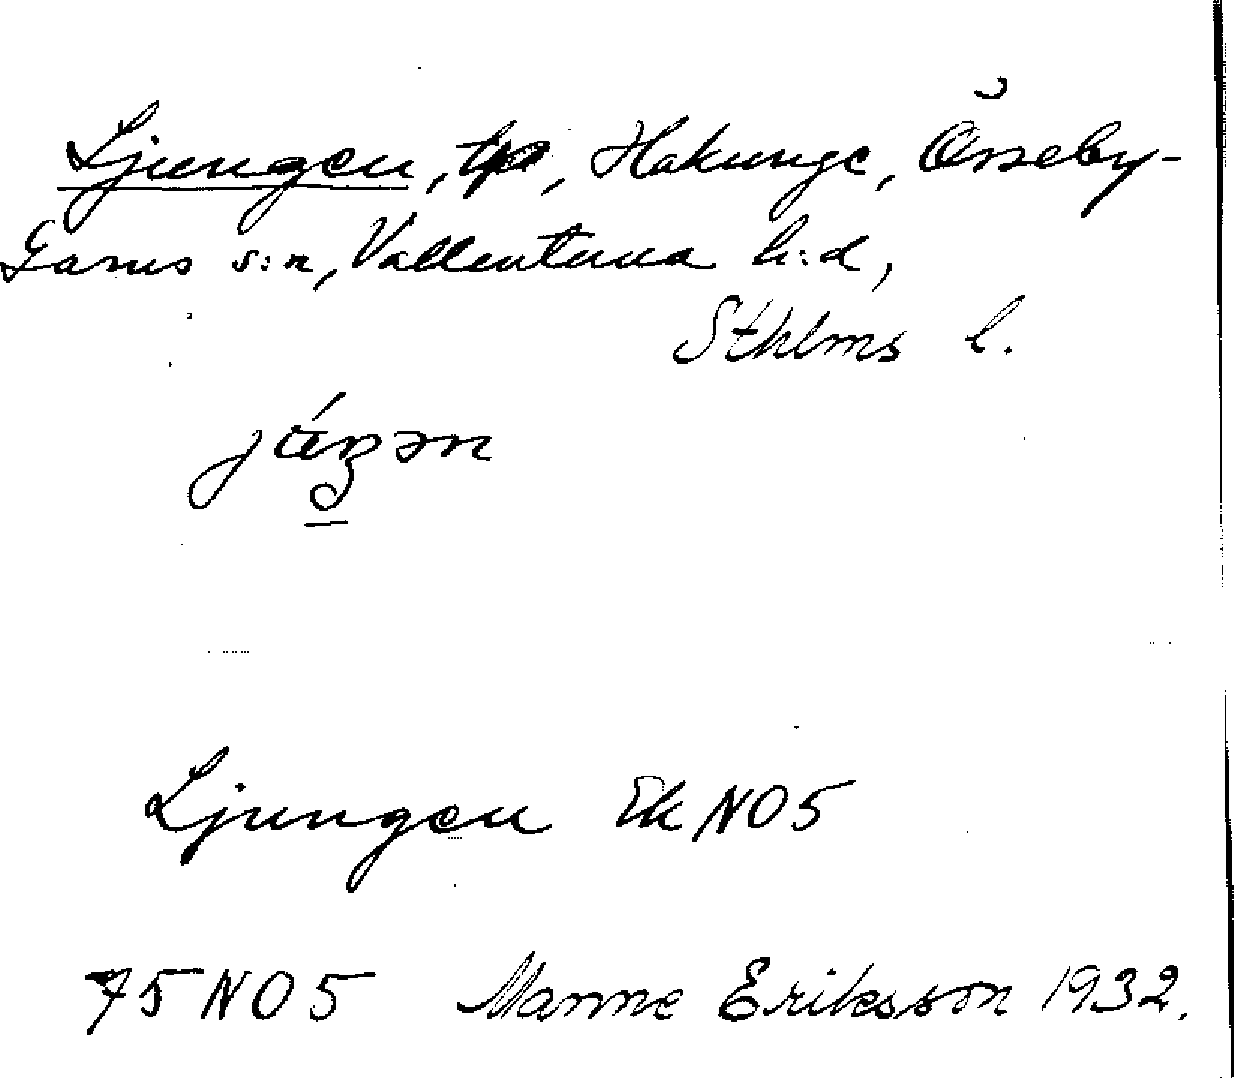 Ljungen, tp, Hakunge, Össeby-
Garns s:n, Vallentuna h:d,
Sthlms l.
Ljungen Ek NO 5
75 NO 5 Manne Eriksson 1932.